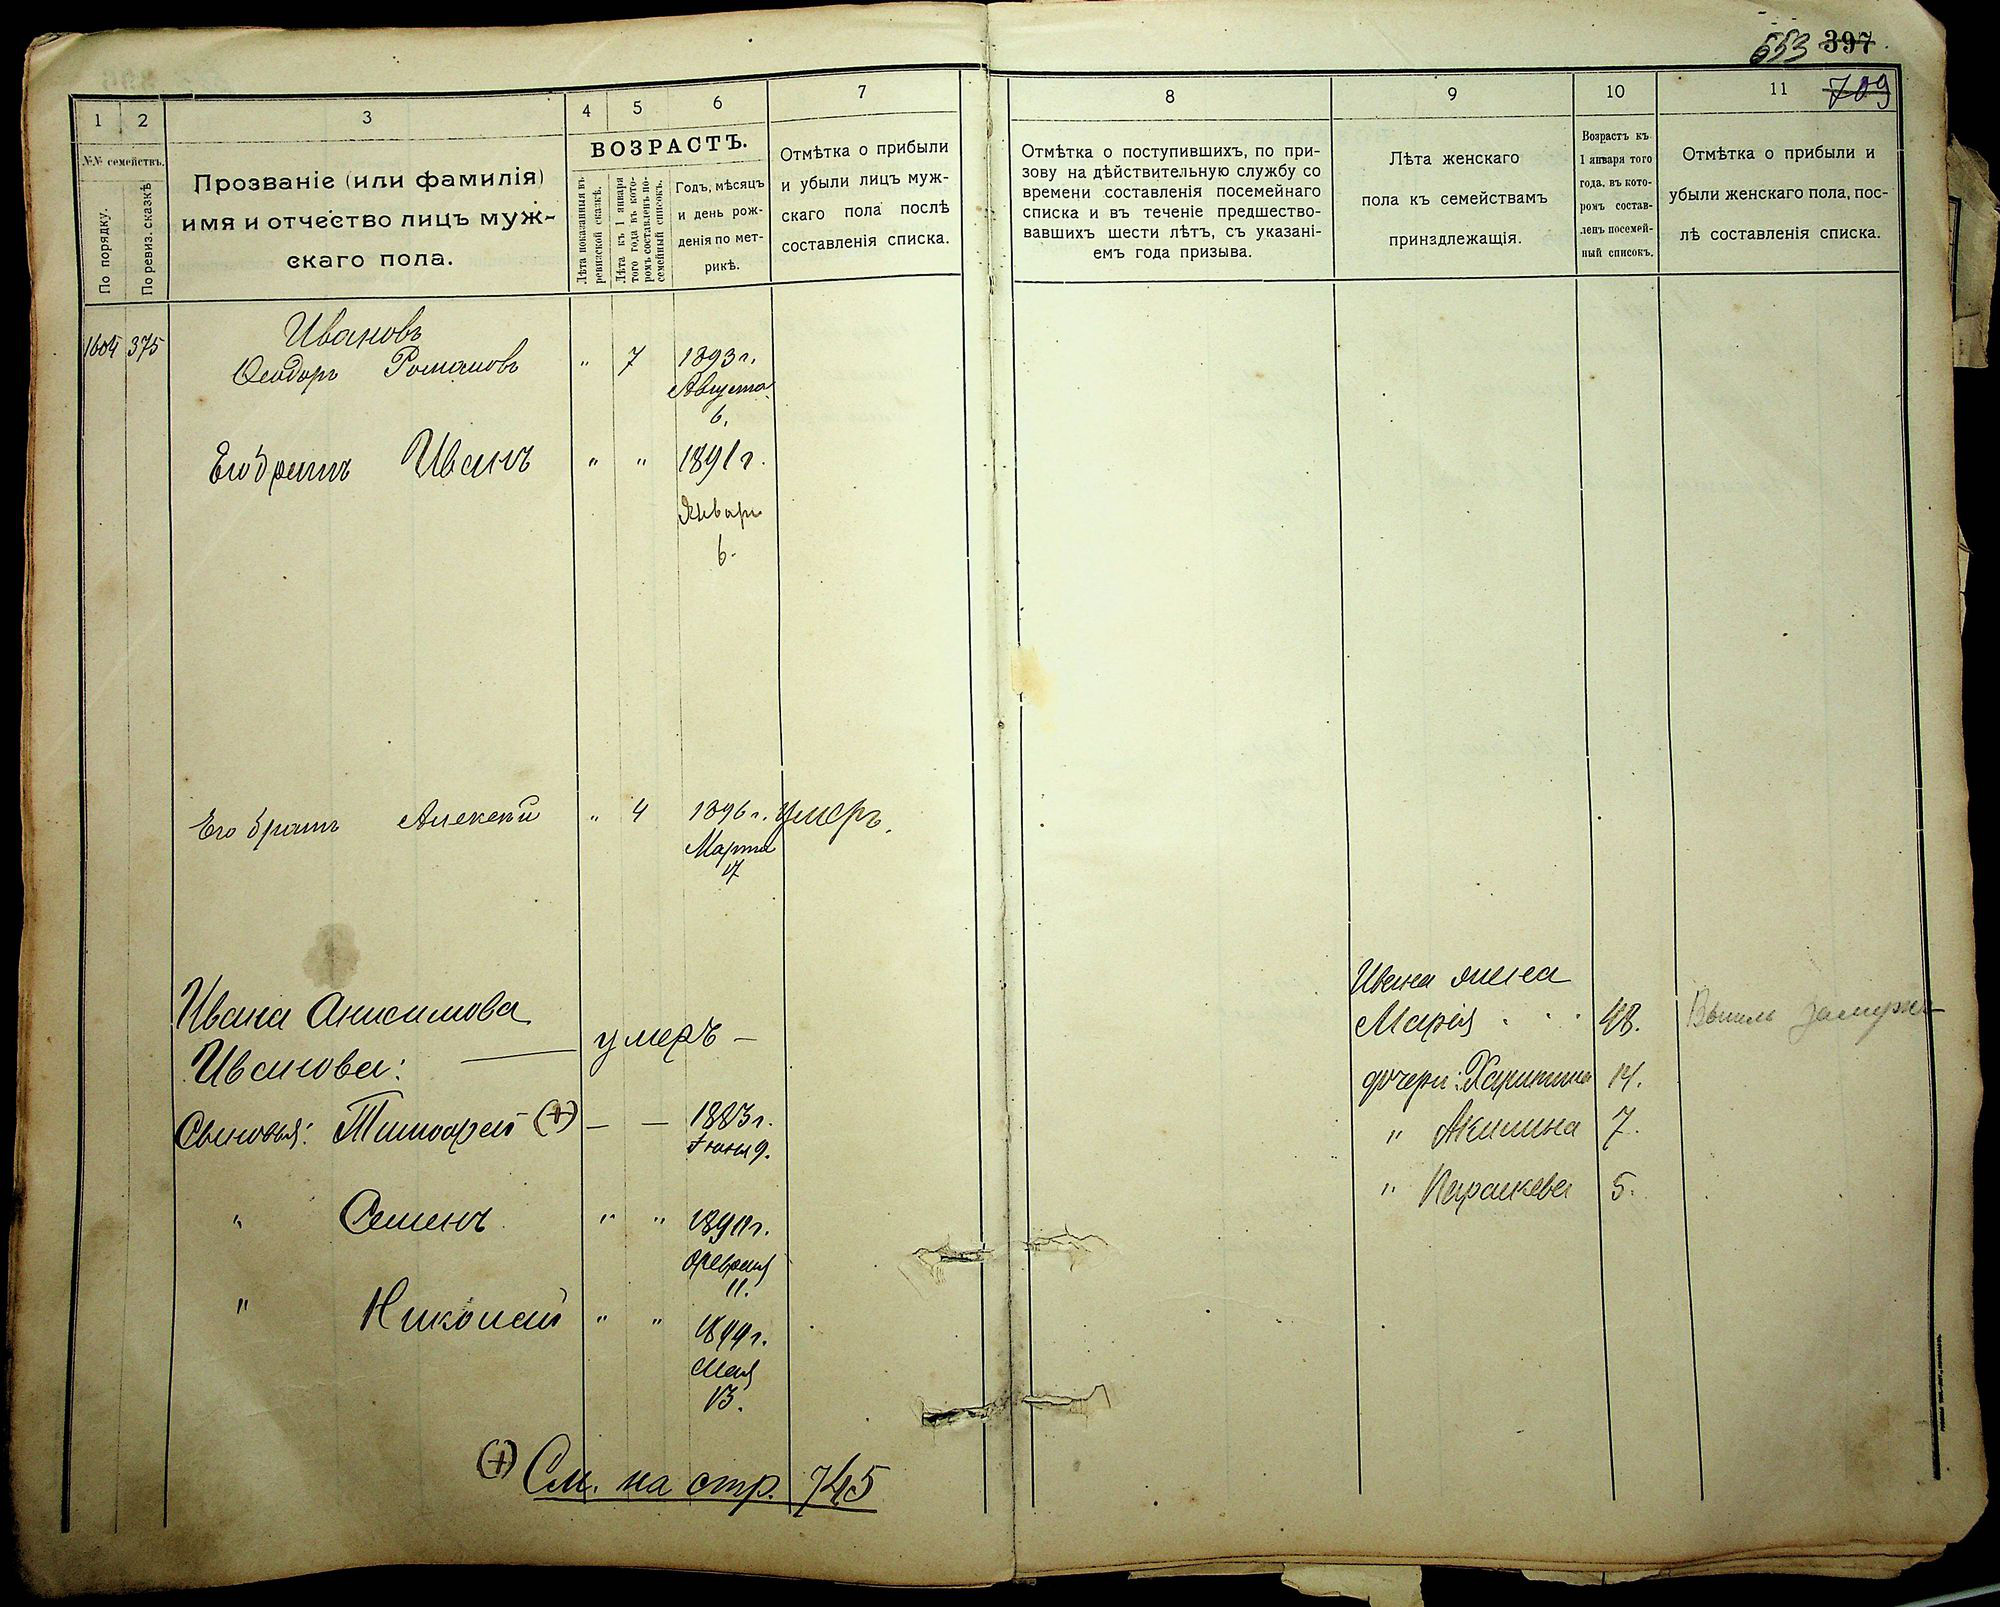 553 397
709
1
2
3
4
5
6
7
№№ семействъ.
По порядку.
По ревиз. сказкѣ
Прозваніе (или фамилія)
имя и отчество лицъ муж-
скаго пола.
ВОЗРАСТЪ.
Лѣта показанныя въ
ревизской сказкѣ.
Лѣта къ 1 января
того года въ кото-
ромъ составленъ по-
семейный списокъ.
Годъ, мѣсяцъ
и день рож-
денія по мет-
рикѣ.
Отмѣтка о прибыли
и убыли лицъ муж-
скаго пола послѣ
составленія списка.
8
9
10
11
Отмѣтка о поступившихъ, по при-
зову на дѣйствительную службу со
времени составленія посемейнаго
списка и въ теченіе предшество-
вавшихъ шести лѣтъ, съ указані-
емъ года призыва.
Лѣта женскаго
пола къ семействамъ
принадлежащія.
Возрастъ къ
1 января того
года, въ кото-
ромъ состав-
ленъ посемей-
ный списокъ.
Отмѣтка о прибыли и
убыли женскаго пола, пос-
лѣ составленія списка.
1604 375
Ивановъ
Ѳеодоръ Романовъ " 7 1893 г.
Августа
6.
Его братъ Иванъ " " 1891 г.
Января
6.
Его братъ Алексѣй " 4 1896 г. умеръ.
Марта
17
Ивана Анисимова
Иванова: умеръ —
Сыновья: Тимофей (+) — — 1883 г.
Іюня 9.
" Семенъ " "
Февраля
11.
" Николай " " 1899 г.
Мая
13.
(+) См. на стр. 745
Ивана жена
Марія . . . 48. Вышла замужъ
дочери: Харитина 14.
" Акилина 7.
" Параскева 5.